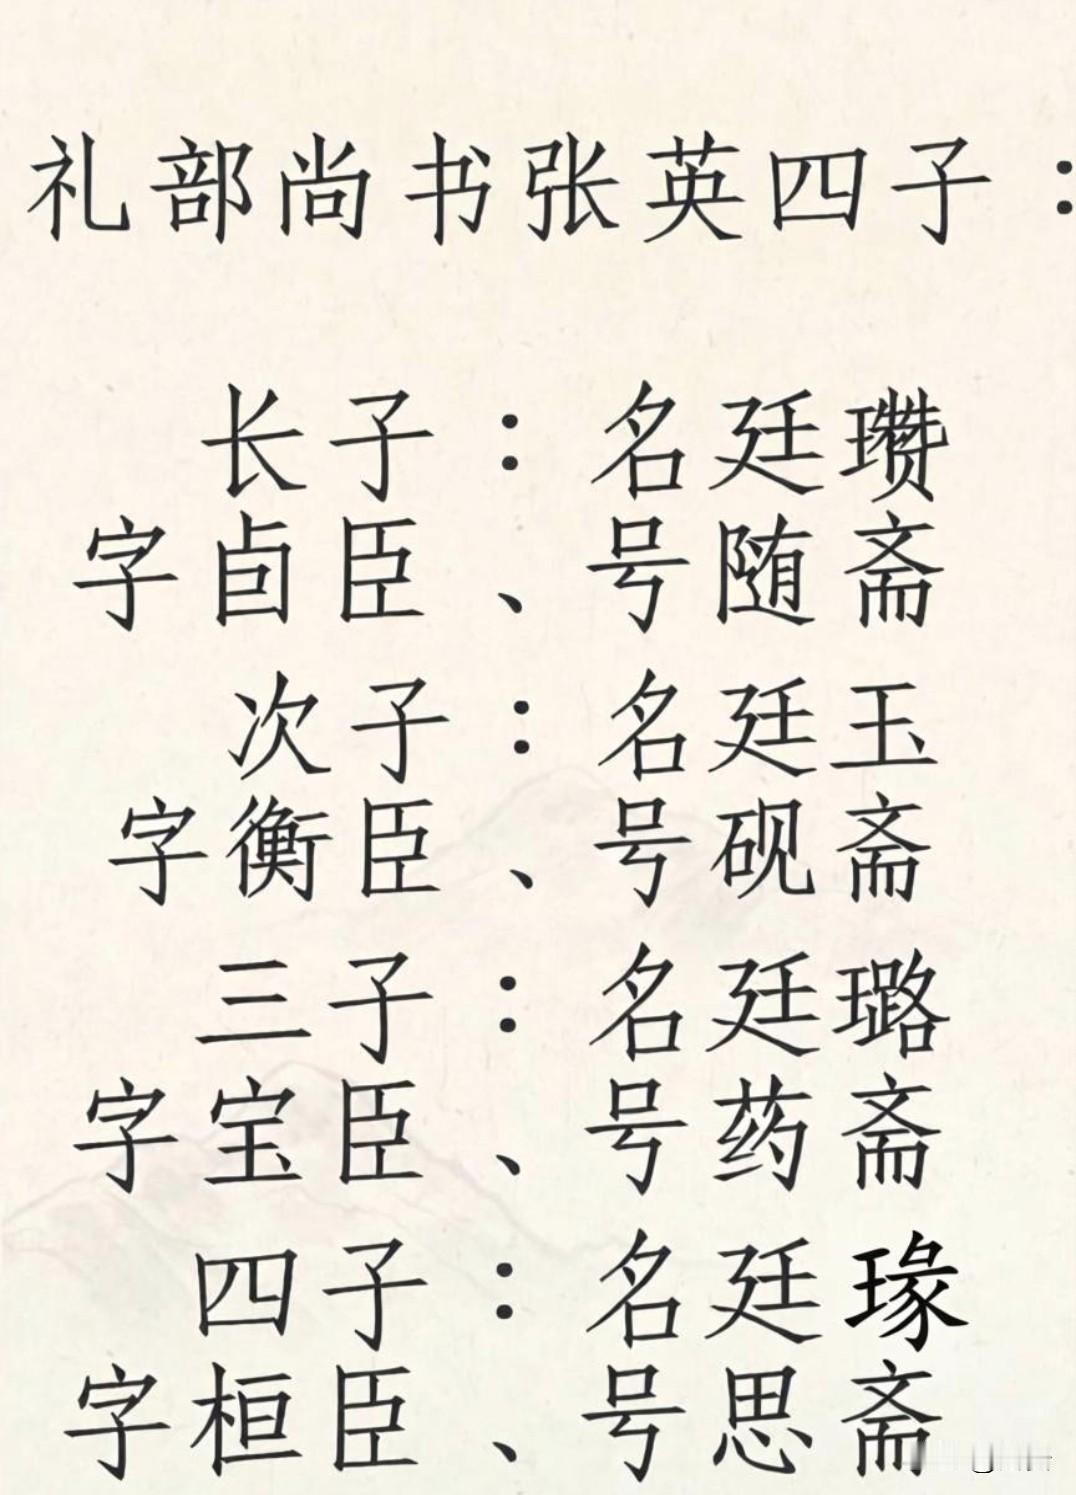 礼部尚书张英四子：
长子：名廷瓒
字卣臣、号随斋
次子：名廷玉
字衡臣、号砚斋
三子：名廷璐
字宝臣、号药斋
四子：名廷瑑
字桓臣、号思斋